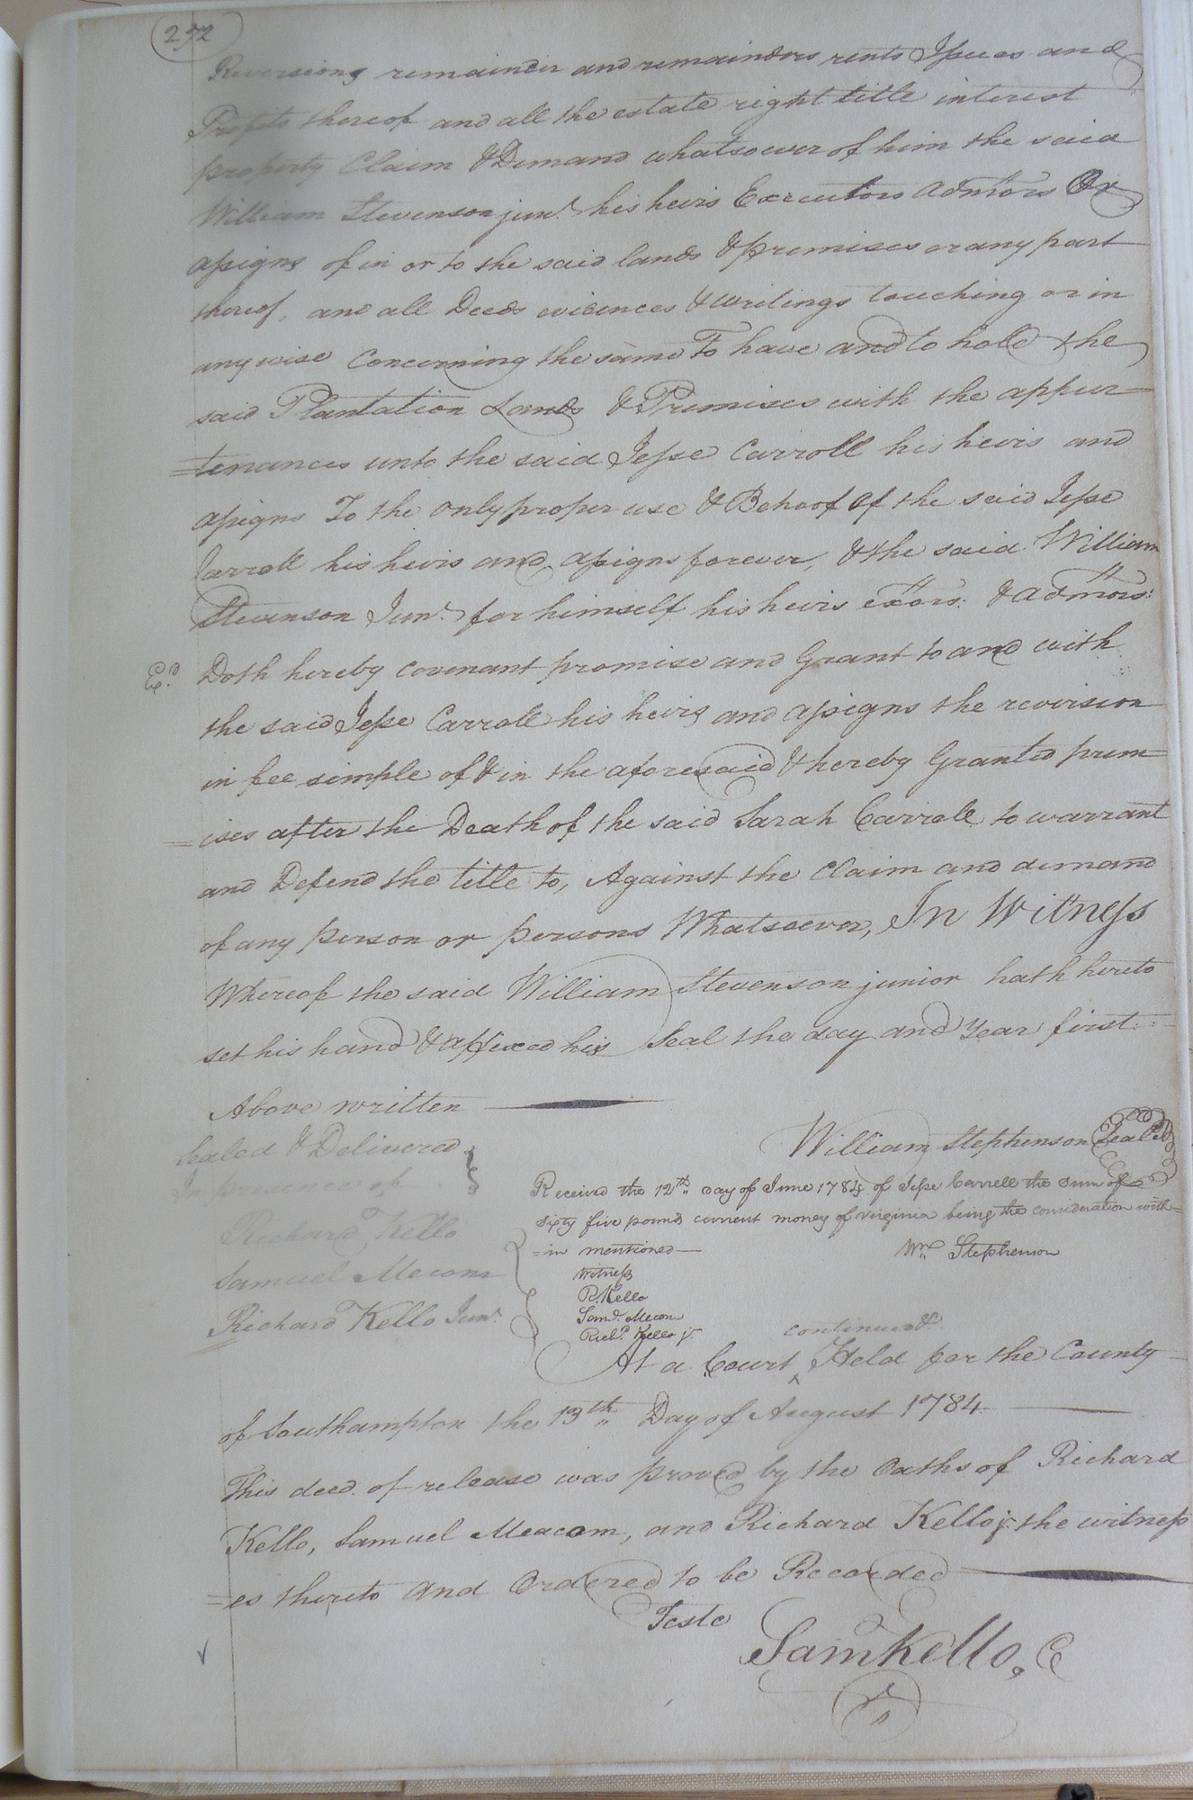 252
Reversions remainder and remainders rents Issues and
Profits thereof and all the estate right title interest
property Claim & Demand whatsoever of him the said
William Stevenson junr. his heirs Executors admtors Or
assigns of in or to the said lands & premises or any part
thereof, and all Deeds evidences & writings touching or in
any wise Concerning the same To have and to hold the
said Plantation Lands & Premises with the appur=
=tenances unto the said Jesse Carroll his heirs and
assigns To the only proper use & Behoof of the said Jesse
Carroll his heirs and assigns forever, & the said William
Stevenson Junr. for himself his heirs exōrs: & admors:
Exd. Doth hereby covenant promise and Grant to and with
the said Jesse Carroll his heirs and assigns the revirsion
in fee simple of & in the aforesaid & hereby Granted prem=
=ises after the Death of the said Sarah Carroll to warrant
and Defend the title to, Against the Claim and demand
of any person or persons Whatsoever, In Witness
Whereof the said William Stevenson junior hath hereto
set his hand & affixed his Seal the day and Year first
Above written
Sealed & Delivered
In presence of
William Stephenson Seald
Richard Kello
Samuel Mecom
Richard Kello Junr.
Received the 12th. day of June 1784 of Jesse Carrell the sum of
sixty five pound current money of virginia being the consideration with=
=in mentioned
Wm. Stephenson
Witness
R. Kello
Saml. Mecom
Richd. Kello jr.
continued
At a Court ^ Held for the County
of Southampton the 13th. Day of August 1784
This deed of release was proved by the Oaths of Richard
Kello, Samuel Meacom, and Richard Kello jr. the witness
=es thereto and Ordered to be Recorded
Teste
Saml Kello. C